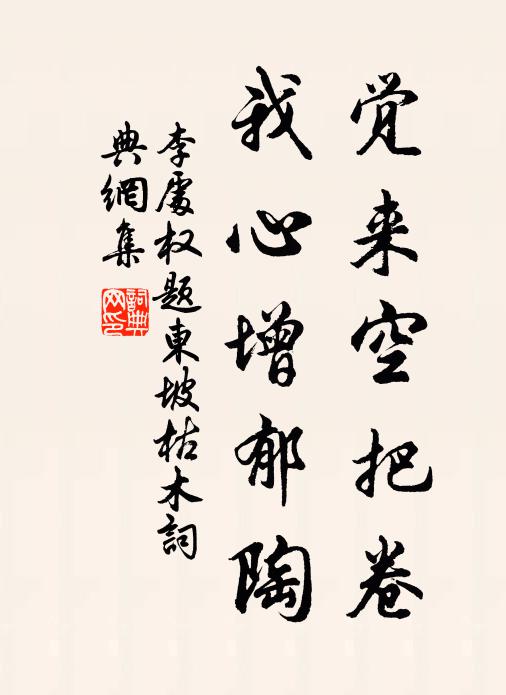 觉来空把卷
我心增郁陶
李處权题東坡枯木詞
典網集
詞典
网印